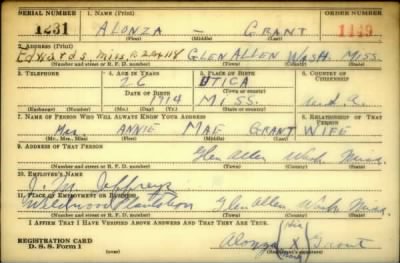 SERIAL NUMBER 1. NAME (Print) ORDER NUMBER
1231 ALONZA - GRANT 1149
(First) (Middle) (Last)
2. ADDRESS (Print)
Edwards Miss. GLEN ALLEN WASH. MISS.
(Number and street or R. F. D. number) (Town) (County) (State)
3. TELEPHONE 4. AGE IN YEARS 5. PLACE OF BIRTH 6. COUNTRY OF CITIZENSHIP
26 UTICA
DATE OF BIRTH (Town or county)
1914 MISS. U.S.A.
(Exchange) (Number) (Mo.) (Day) (Yr.) (State or country)
7. NAME OF PERSON WHO WILL ALWAYS KNOW YOUR ADDRESS 8. RELATIONSHIP OF THAT PERSON
Mrs. ANNIE MAE GRANT WIFE
(Mr., Mrs., Miss) (First) (Middle) (Last)
9. ADDRESS OF THAT PERSON
Glen Allen Wash Miss.
(Number and street or R. F. D. number) (Town) (County) (State)
10. EMPLOYER'S NAME
J. M. Jeffreys
11. PLACE OF EMPLOYMENT OR BUSINESS
Wildwood Plantation Glen Allen Wash Miss.
(Number and street or R. F. D. number) (Town) (County) (State)
I AFFIRM THAT I HAVE VERIFIED ABOVE ANSWERS AND THAT THEY ARE TRUE.
REGISTRATION CARD
D. S. S. Form 1 Alonza (His X Mark) Grant